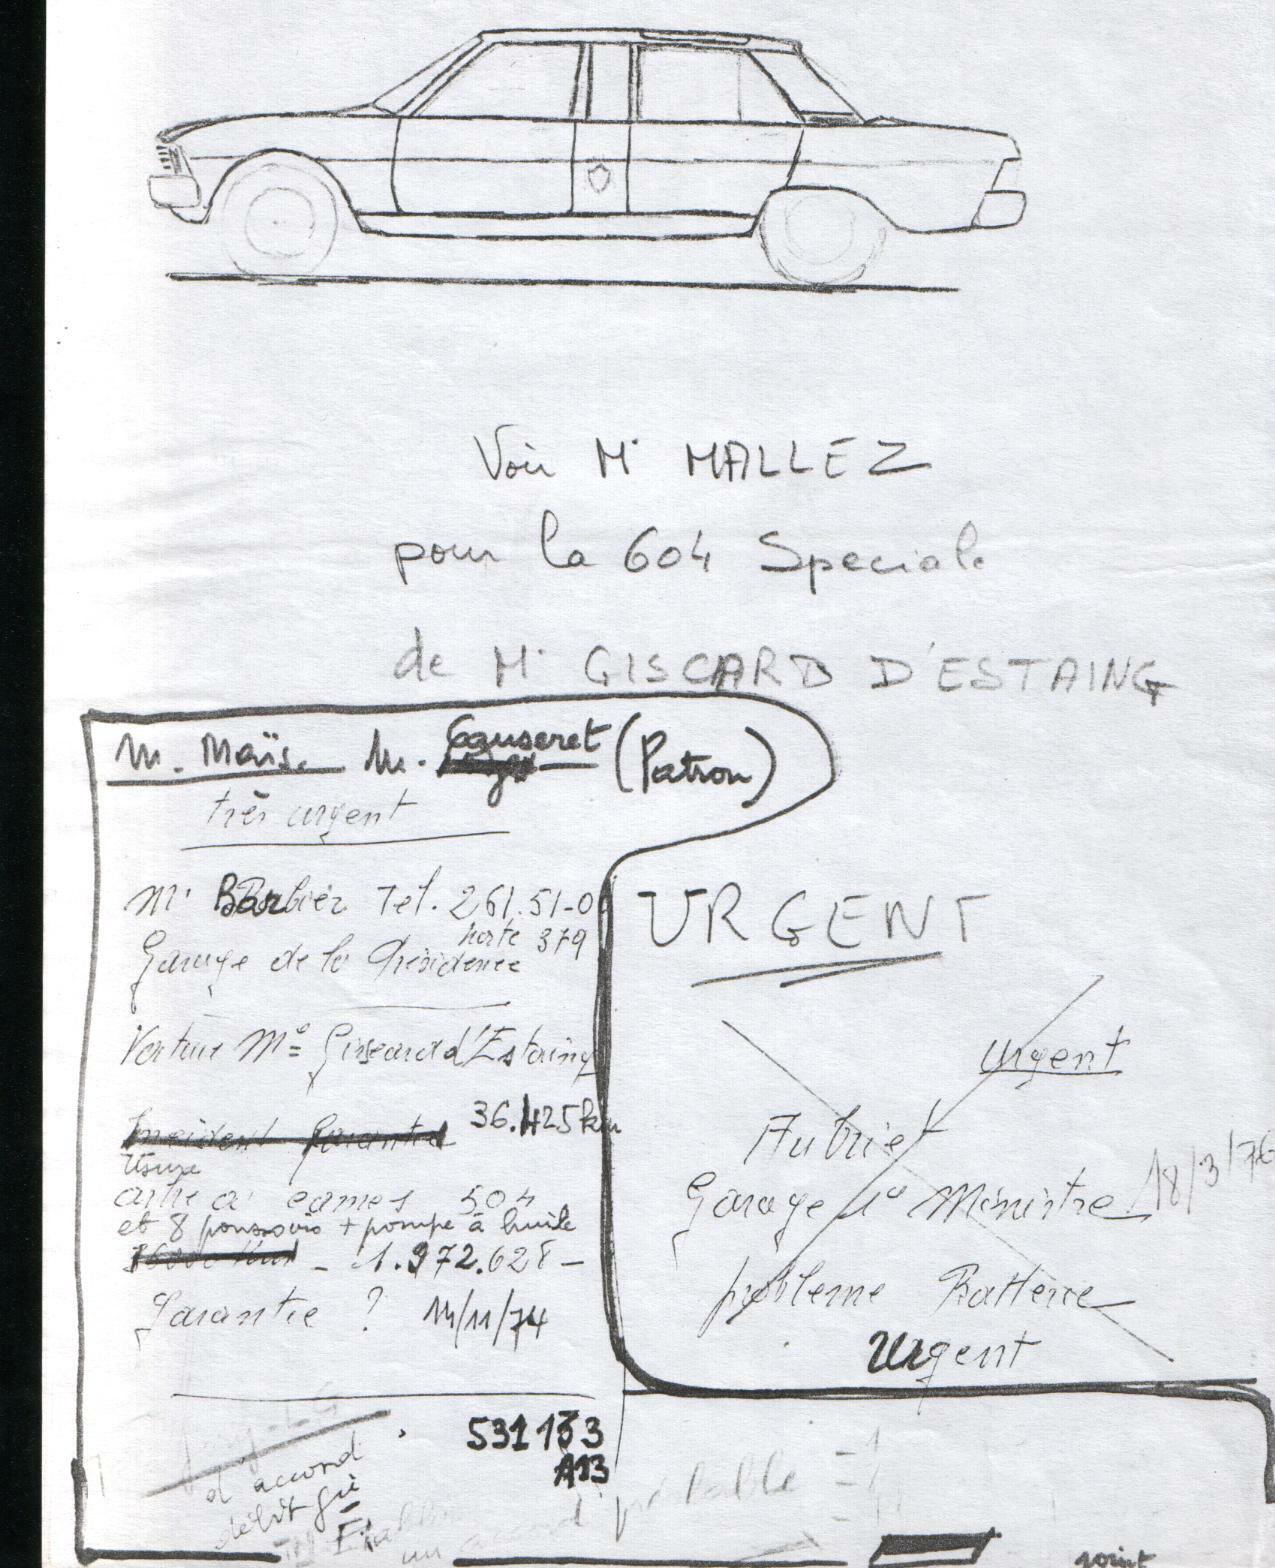 Voir Mr MALLEZ
pour la 604 Speciale
de Mr GISCARD D'ESTAING
M. Maïs. M. Causeret (Patron)
très urgent
Mr Barbier Tel. 261.51-0
Poste 379
Garage de la Présidence
URGENT
Voiture Me Giscard d'Estaing
36.425 km
Incident Garantie
Usure
arbre à cames 504
et 8 poussoirs + pompe à huile
- 1.972.628 -
Garantie ? 14/11/74
Urgent
Aubriet
Garage 1er Ministre 18/3/76
problème Batterie
Urgent
531 133
A13
d'accord
débit
un accord préalable
point